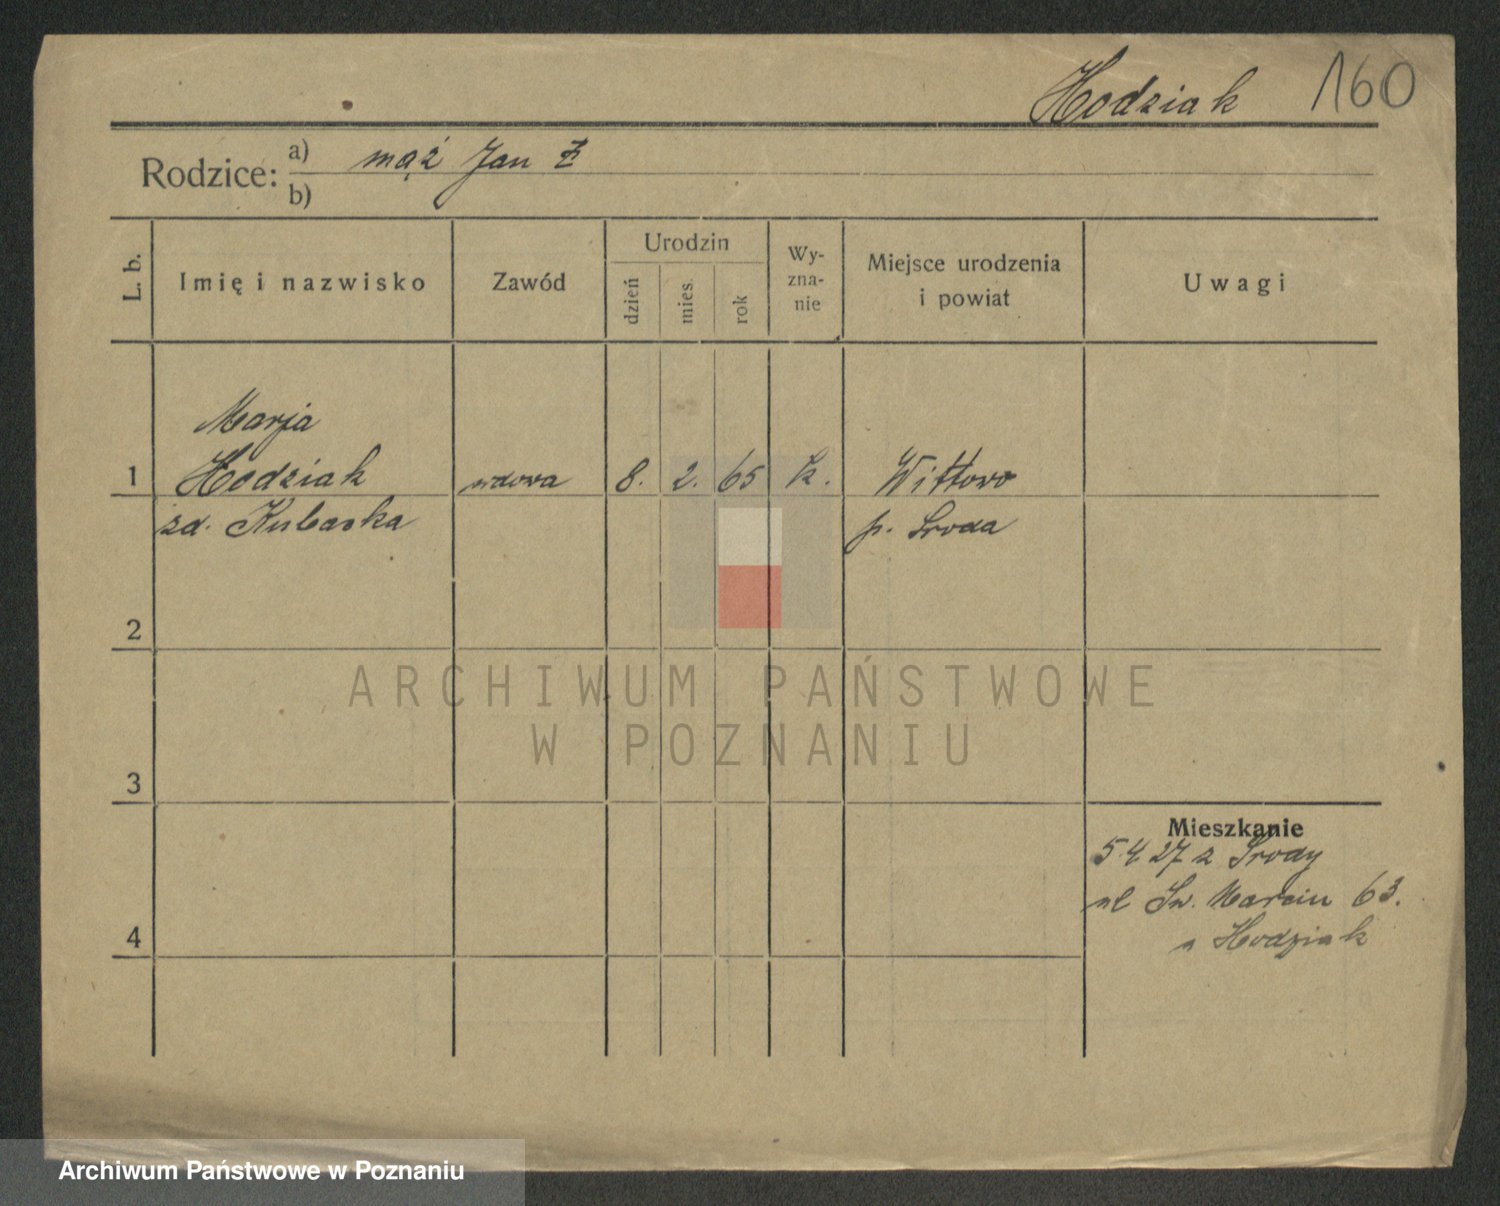 Hodziak 160
Rodzice: a) mąż Jan
b)
L. b. Imię i nazwisko Zawód Urodzin dzień mies. rok Wy-zna-nie Miejsce urodzenia i powiat Uwagi
Marja
1 Hodziak wdowa 8. 2. 65 k. Wittowo
zd. Kubacka p. Sroda
2
3
Mieszkanie
5 4 27 z Srody
ul Sw. Marcin 63.
4 Hodziak
ARCHIWUM PAŃSTWOWE
W POZNANIU
Archiwum Państwowe w Poznaniu